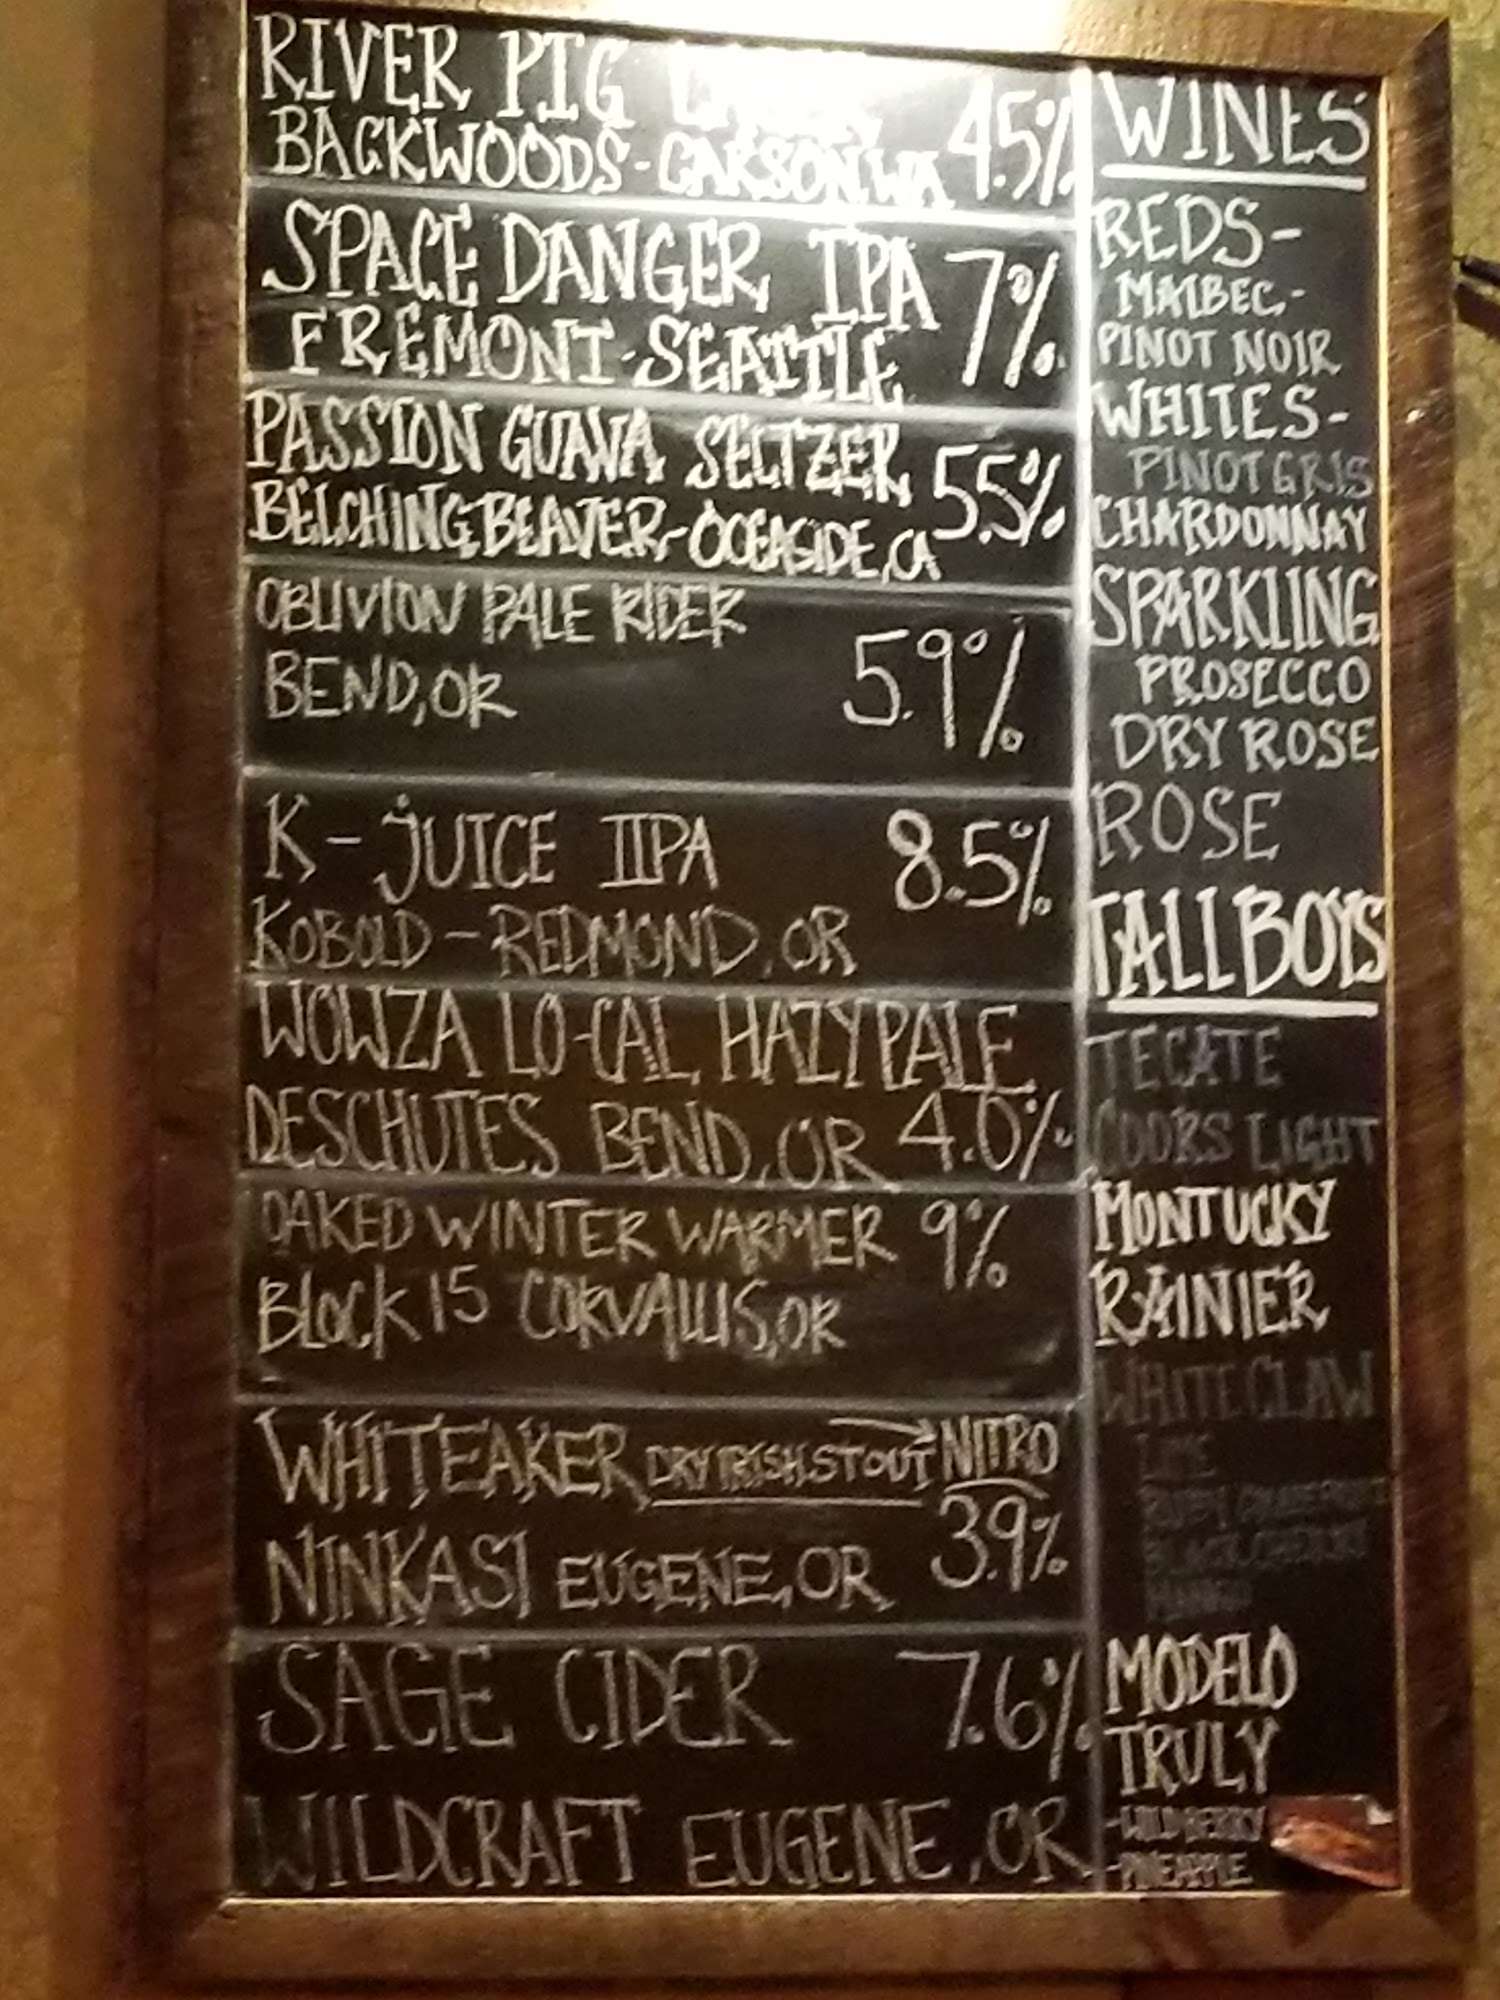 RIVER PIG
BACKWOODS-CARSON, WA 4.5%
SPACE DANGER IPA
FREMONT-SEATTLE 7%
PASSION GUAVA SELTZER
BELCHING BEAVER-OCEASIDE, CA 5.5%
OBLIVION PALE RIDER
BEND, OR 5.9%
K-JUICE IIPA 8.5%
KOBOLD - REDMOND, OR
WOWZA LO-CAL HAZY PALE
DESCHUTES BEND, OR 4.0%
OAKED WINTER WARMER 9%
BLOCK 15 CORVALLIS, OR
WHITEAKER DRY IRISH STOUT NITRO
3.9%
NINKASI EUGENE, OR
SAGE CIDER 7.6%
WILDCRAFT EUGENE, OR
WINES
REDS-
MALBEC-
PINOT NOIR
WHITES-
PINOT GRIS
CHARDONNAY
SPARKLING
PROSECCO
DRY ROSE
ROSE
TALLBOYS
TECATE
COORS LIGHT
MONTUCKY
RAINIER
WHITECLAW
LIME
BLACK CHERRY
MANGO
MODELO
TRULY
-WILD BERRY
-PINEAPPLE